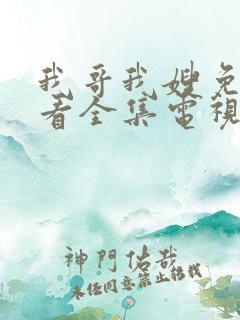 我哥我嫂免
看全集電視
神門佑哉
未經同意禁止轉載